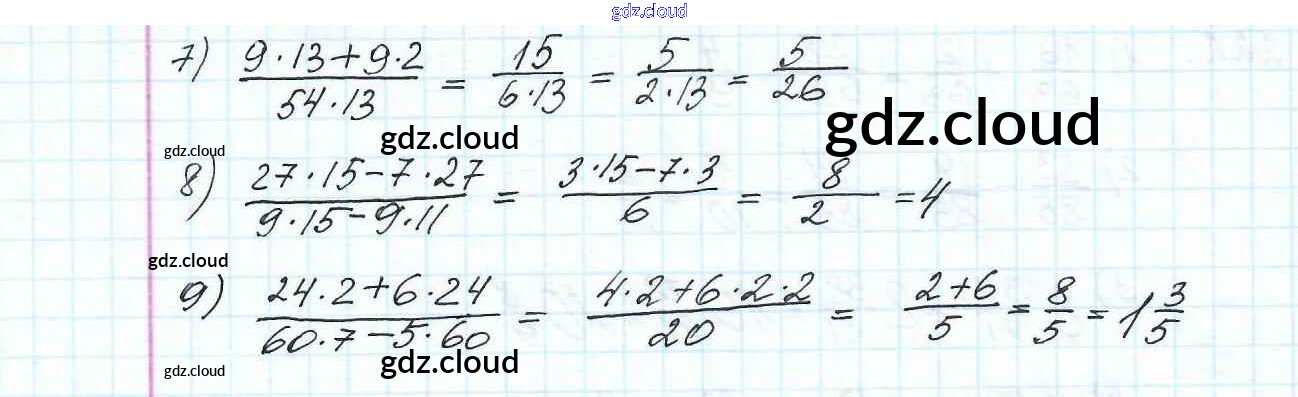 gdz.cloud
7) (9·13+9·2)/(54·13) = 15/(6·13) = 5/(2·13) = 5/26
gdz.cloud
gdz.cloud
gdz.cloud
8) (27·15−7·27)/(9·15−9·11) = (3·15−7·3)/6 = 8/2 = 4
gdz.cloud
9) (24·2+6·24)/(60·7−5·60) = (4·2+6·2·2)/20 = (2+6)/5 = 8/5 = 1 3/5
gdz.cloud
gdz.cloud